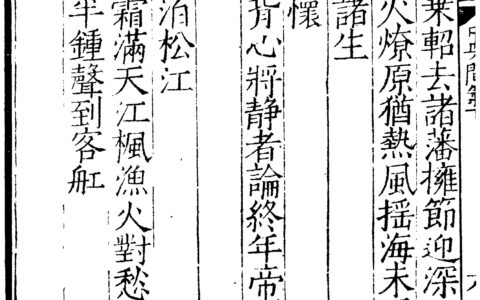 乗軺去諸藩擁節迎深
火燎原猶熱風揺海未
諸生
懷
背心將静者論終年帝
泊松江
霜滿天江楓漁火對愁
半鍾聲到客舡